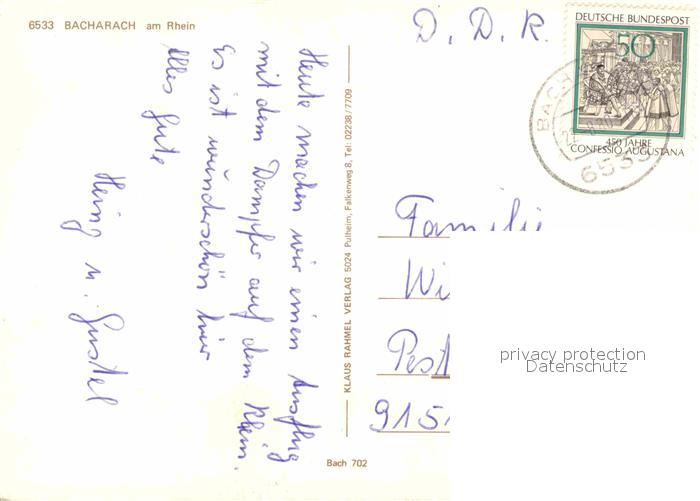 6533 BACHARACH am Rhein
Heute machen wir einen Ausflug
mit dem Dampfer auf dem Rhein.
Es ist wunderschön hier
Alles Gute
Heinz u. Gustel
KLAUS RAHMEL VERLAG 5024 Pulheim, Falkenweg 8, Tel: 02238/7709
Bach 702
D. D. R.
DEUTSCHE BUNDESPOST
50
450 JAHRE
CONFESSIO AUGUSTANA
BACH
6533
Familie
Wi
Pest
915
privacy protection
Datenschutz